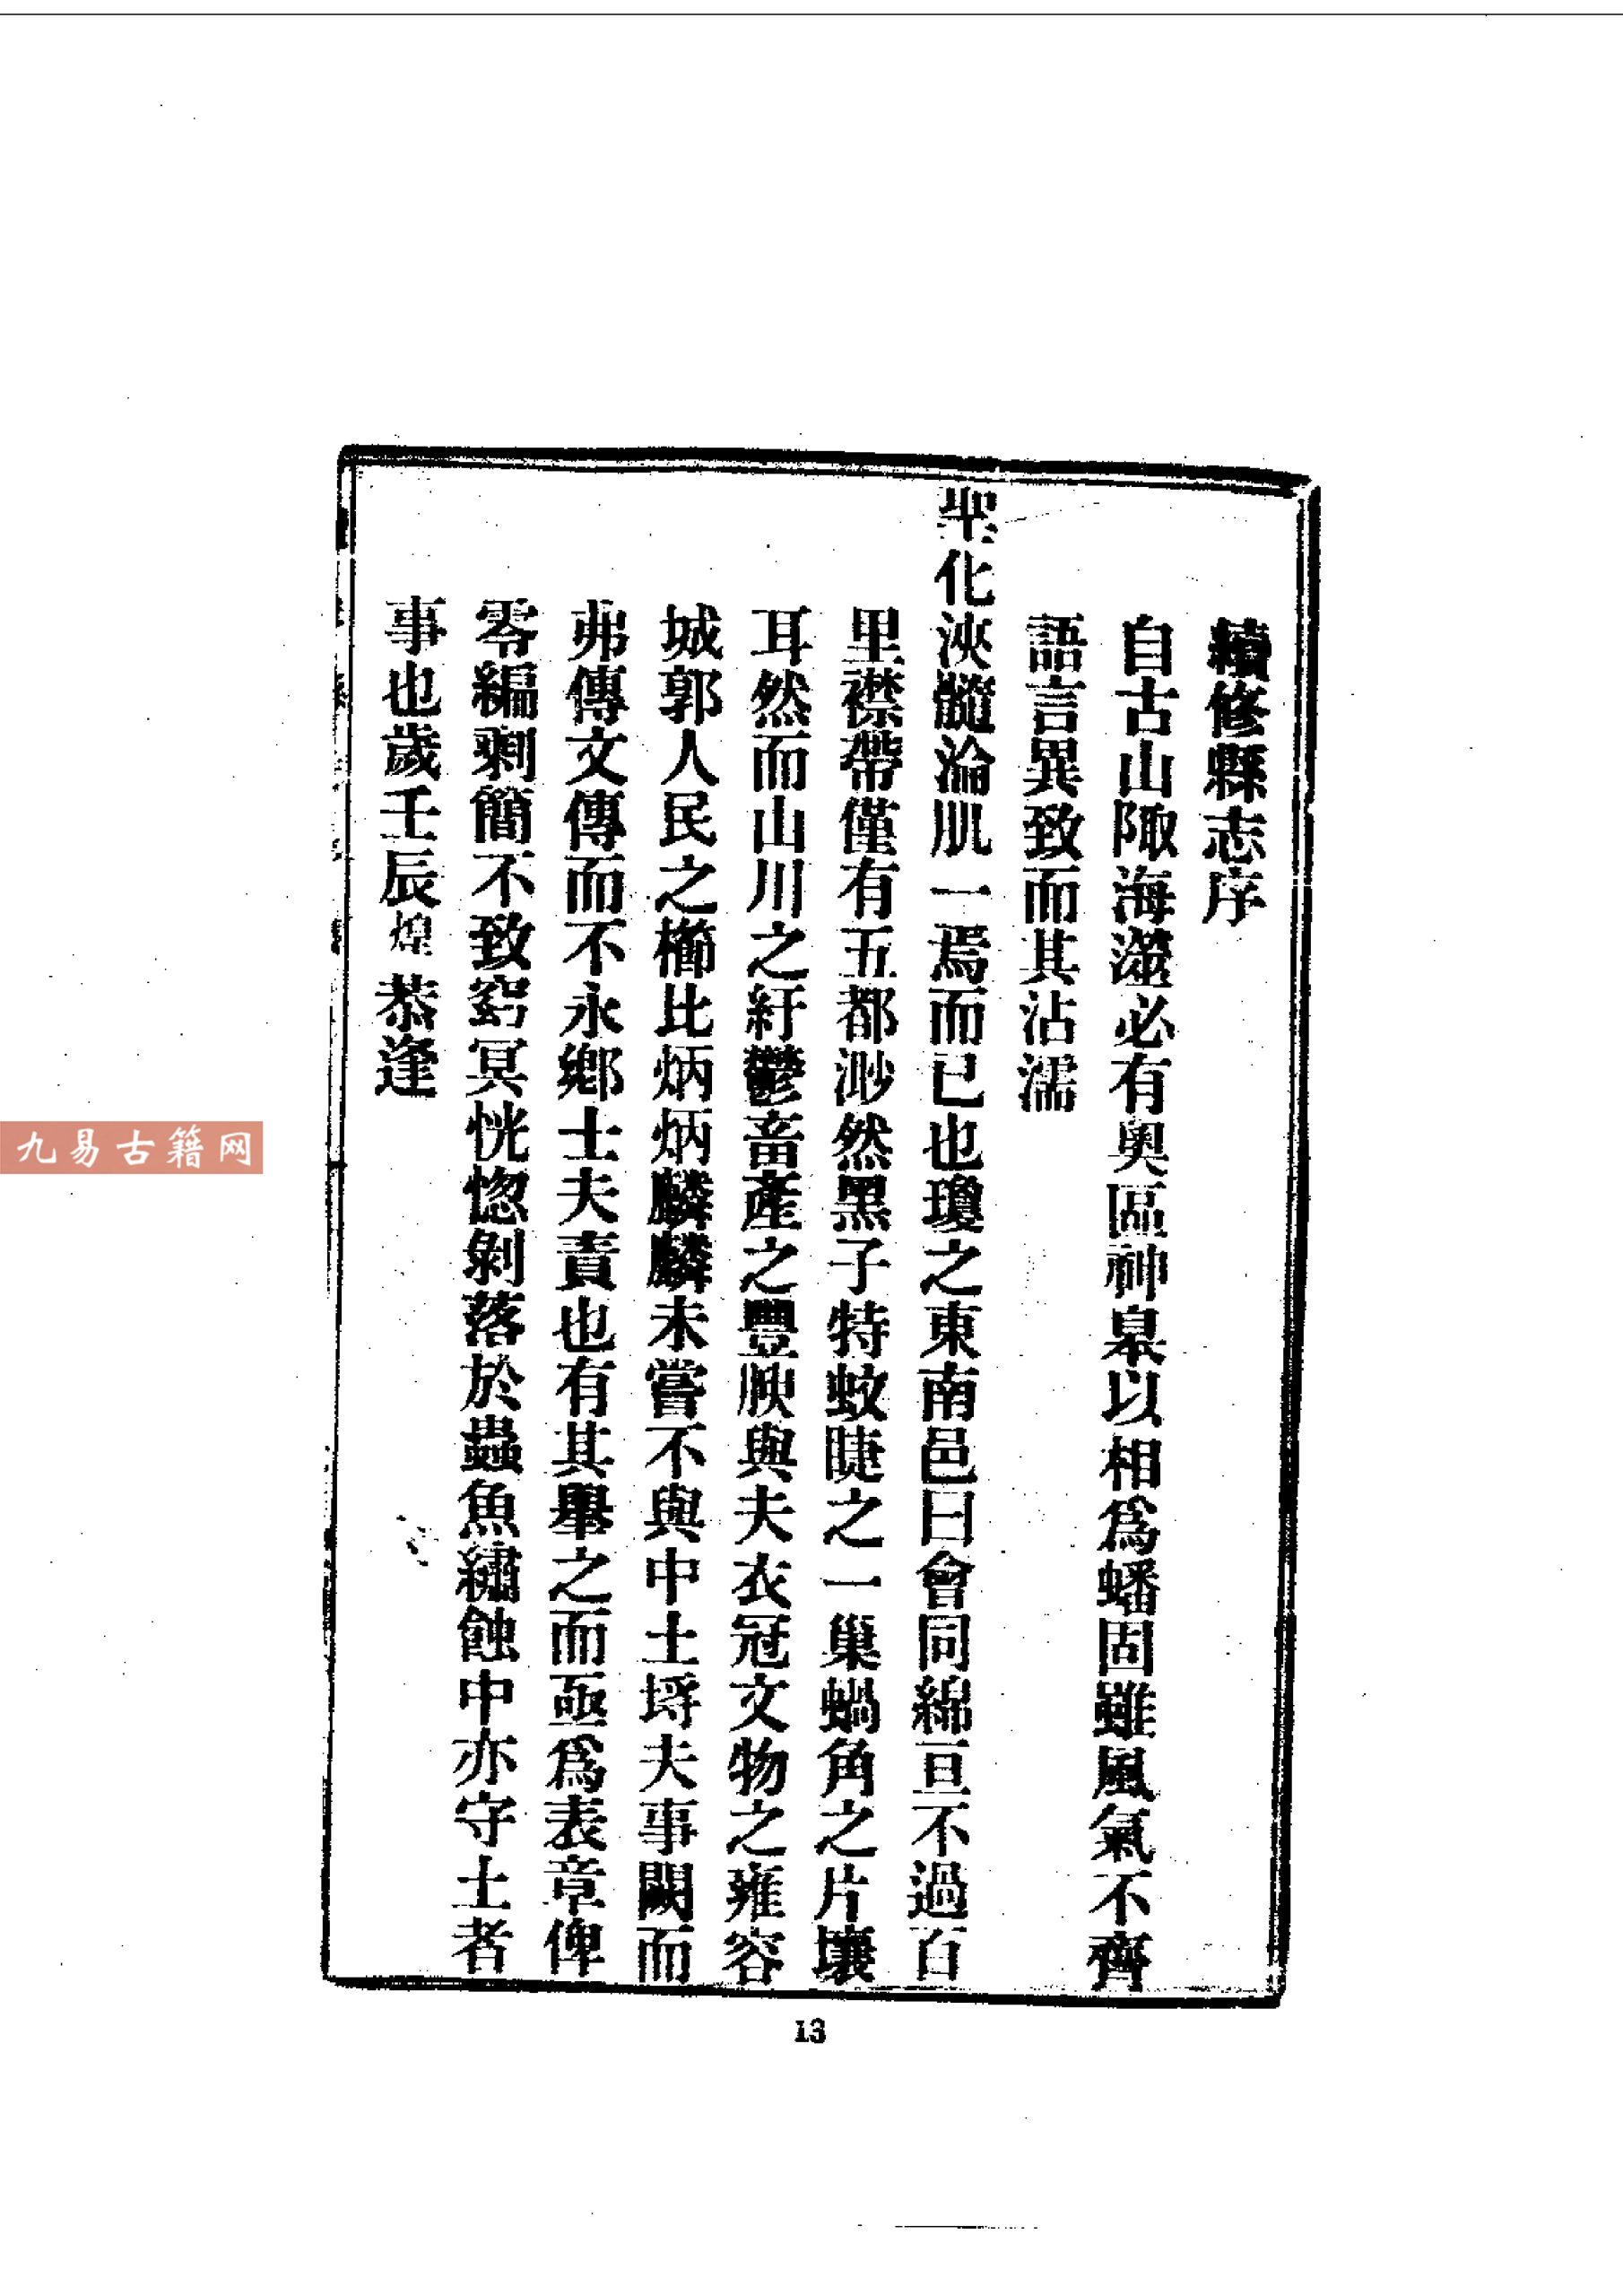 續修縣志序
自古山陬海澨必有奥區神臯以相爲蟠固雖風氣不齊
語言異致而其沾濡
聖化浹髓淪肌一焉而已也瓊之東南邑曰會同綿亘不過百
里襟帶僅有五都渺然黑子特蚊睫之一巢蝸角之片壤
耳然而山川之紆鬱畜產之豐腴與夫衣冠文物之雍容
城郭人民之櫛比炳炳麟麟未嘗不與中土埒夫事闕而
弗傳文傳而不永鄉士夫責也有其舉之而亟爲表章俾
零編剩簡不致窈冥恍惚剝落於蟲魚繡蝕中亦守土者
事也歲壬辰煌恭逢
13
九易古籍网